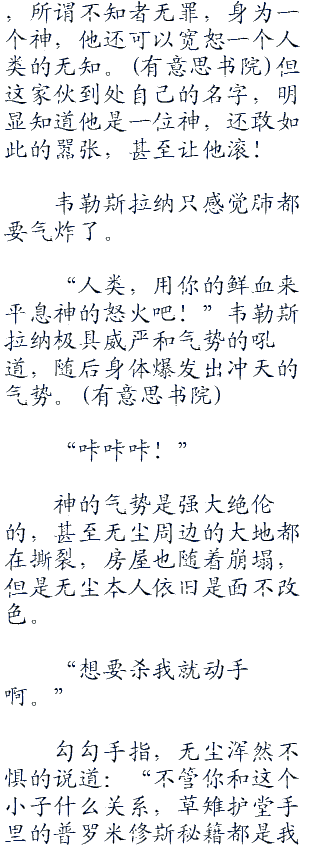 ，所谓不知者无罪，身为一
个神，他还可以宽恕一个人
类的无知。(有意思书院)但
这家伙到处自己的名字，明
显知道他是一位神，还敢如
此的嚣张，甚至让他滚！
韦勒斯拉纳只感觉肺都
要气炸了。
“人类，用你的鲜血来
平息神的怒火吧！”韦勒斯
拉纳极具威严和气势的吼
道，随后身体爆发出冲天的
气势。(有意思书院)
“咔咔咔！”
神的气势是强大绝伦
的，甚至无尘周边的大地都
在撕裂，房屋也随着崩塌，
但是无尘本人依旧是面不改
色。
“想要杀我就动手
啊。”
勾勾手指，无尘浑然不
惧的说道：“不管你和这个
小子什么关系，草雉护堂手
里的普罗米修斯秘籍都是我